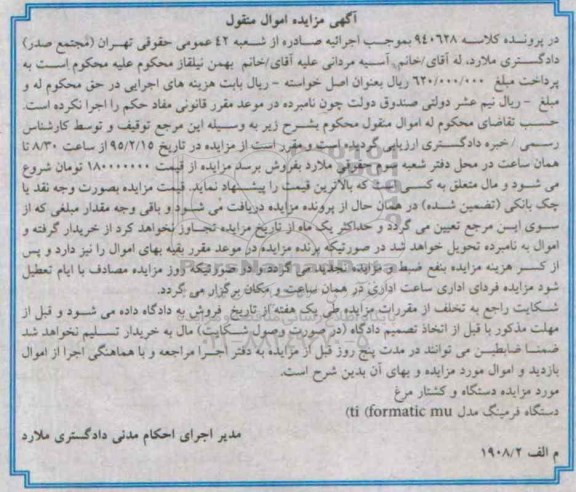 آگهی مزایده اموال منقول
در پرونده کلاسه ۹۴۰۶۲۸ بموجب اجرائیه صادره از شعبه ۴۲ عمومی حقوقی تهران (مجتمع صدر)
دادگستری ملارد، له آقای/خانم آسیه مردانی علیه آقای/خانم بهمن نیلقاز محکوم علیه محکوم است به
پرداخت مبلغ ۶۲۰/۰۰۰/۰۰۰ ریال بعنوان اصل خواسته – ریال بابت هزینه های اجرایی در حق محکوم له و
مبلغ – ریال نیم عشر دولتی صندوق دولت چون نامبرده در موعد مقرر قانونی مفاد حکم را اجرا نکرده است.
حسب تقاضای محکوم له اموال منقول محکوم بشرح زیر به وسیله این مرجع توقیف و توسط کارشناس
رسمی / خبره دادگستری ارزیابی گردیده است و مقرر است از مزایده در تاریخ ۹۵/۲/۱۵ از ساعت ۸/۳۰ تا
همان ساعت در محل دفتر شعبه سوم حقوقی ملارد بفروش برسد مزایده از قیمت ۱۸۰۰۰۰۰۰۰ تومان شروع
می شود و مال متعلق به کسی است که بالاترین قیمت را پیشنهاد نماید. قیمت مزایده بصورت وجه نقد یا
چک بانکی (تضمین شده) در همان حال از برنده مزایده دریافت می شود و باقی وجه مقدار مبلغی که از
سوی این مرجع تعیین می گردد و حداکثر یک ماه از تاریخ مزایده تجاوز نخواهد کرد از خریدار گرفته و
اموال به نامبرده تحویل خواهد شد در صورتیکه برنده مزایده در موعد مقرر بقیه بهای اموال را نیز دارد و پس
از کسر هزینه مزایده بنفع ضبط و مزایده تجدید می گردد و در صورتیکه روز مزایده مصادف با ایام تعطیل
شود مزایده فردای اداری ساعت اداری در همان ساعت و مکان برگزار می گردد.
شکایت راجع به تخلف از مقررات مزایده طی یک هفته از تاریخ فروش به دادگاه داده می شود و قبل از
مهلت مذکور یا قبل از اتخاذ تصمیم دادگاه (در صورت وصول شکایت) مال به خریدار تسلیم نخواهد شد
ضمنا ضابطین می توانند در مدت پنج روز قبل از مزایده به دفتر اجرا مراجعه و با هماهنگی اجرا از اموال
بازدید و اموال مورد مزایده و بهای آن بدین شرح است.
مورد مزایده دستگاه و کشتار مرغ
دستگاه فرمینگ مدل ti (formatic mu)
مدیر اجرای احکام مدنی دادگستری ملارد
م الف ۱۹۰۸/۲